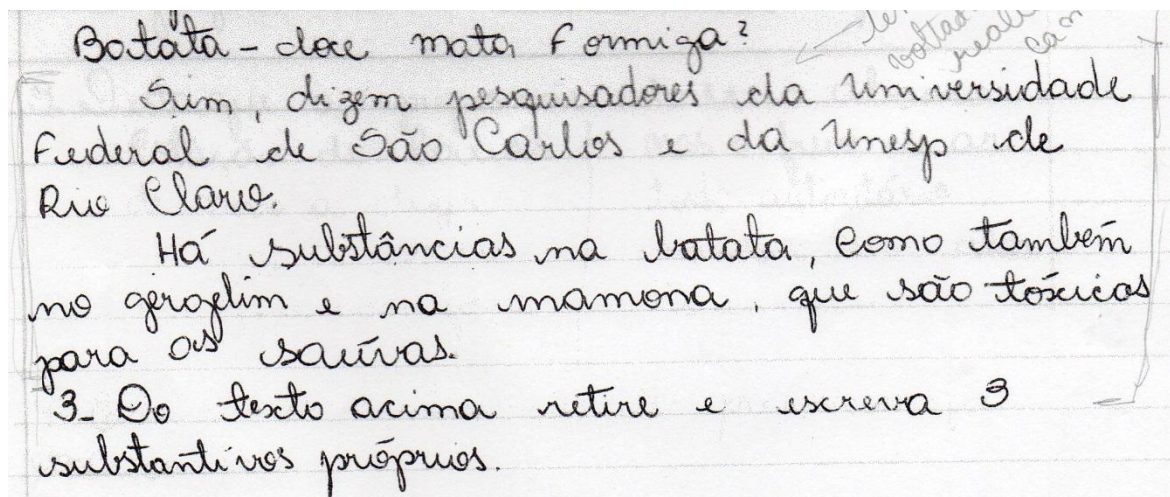 Batata-doce mata formiga?
Sim, dizem pesquisadores da Universidade
Federal de São Carlos e da Unesp de
Rio Claro.
Há substâncias na batata, como também
no gergelim e na mamona, que são tóxicas
para as saúvas.
3- Do texto acima retire e escreva 3
substantivos próprios.